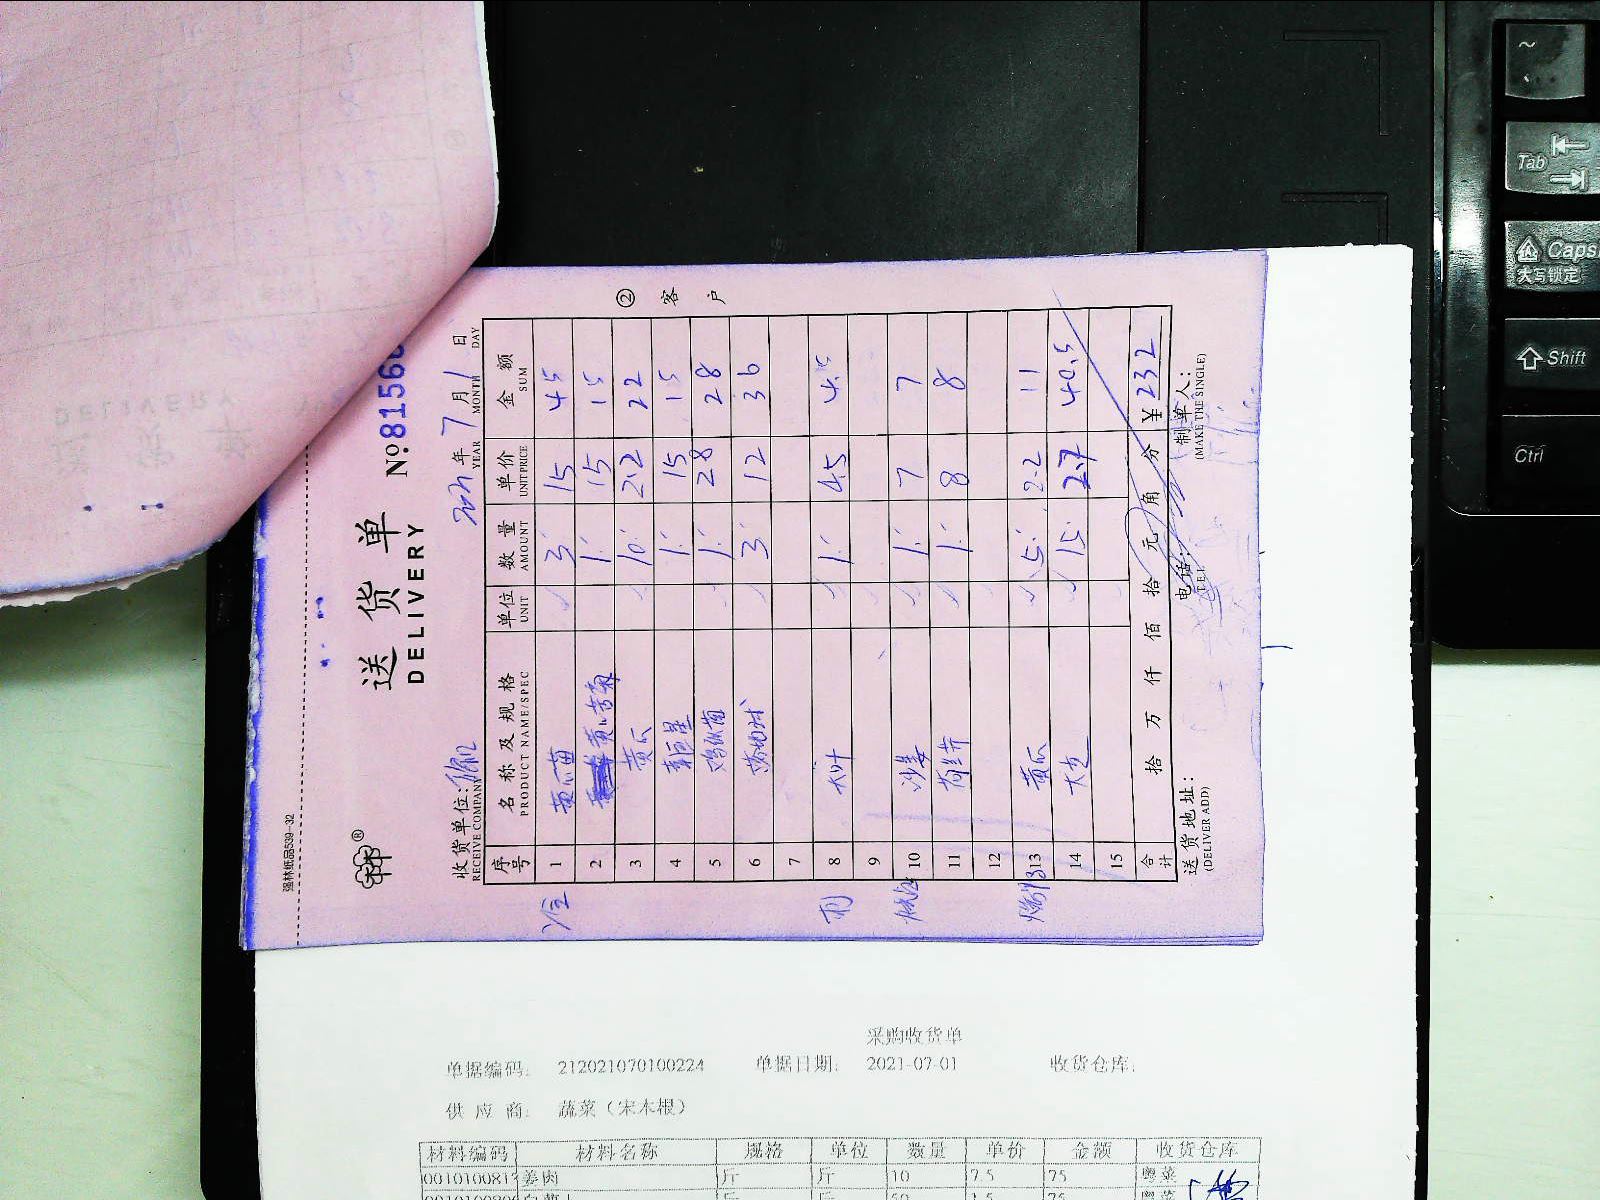 强林纸品539-32
送货单
DELIVERY
№815
收货单位:
RECEIVE COMPANY
2021年7月1日
YEAR MONTH DAY
序号 名称及规格 单位 数量 单价 金额
PRODUCT NAME/SPEC UNIT AMOUNT UNIT PRICE SUM
1 黄瓜苗 3 15 45
2 1 15 15
3 黄瓜 10 2.2 22
4 1 15 15
5 鸡纵菌 1 28 28
6 3 12 36
7
8 1 4.5 4.5
9
10 沙姜 1 7 7
11 1 8 8
12
13 黄瓜 5 2.2 11
14 15 2.7 40.5
15
合计 拾 万 仟 佰 拾 元 角 分 ¥232
送货地址: 电话: 制单人:
(DELIVER ADD) TEL (MAKE THE SINGLE)
② 客户
采购收货单
单据编码: 212021070100224 单据日期: 2021-07-01 收货仓库:
供应商: 蔬菜(宋本根)
材料编码 材料名称 规格 单位 数量 单价 金额 收货仓库
姜肉 斤 斤 10 7.5 75 粤菜
~
Tab
Caps
大写锁定
Shift
Ctrl